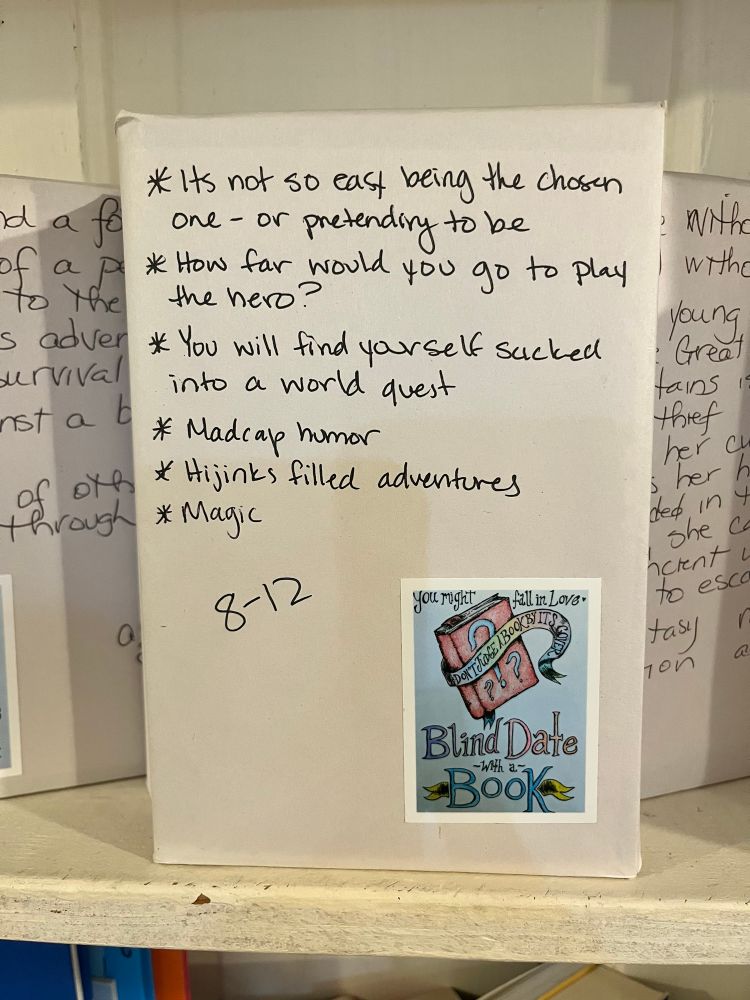 * Its not so easy being the chosen
one - or pretending to be
* How far would you go to play
the hero?
* You will find yourself sucked
into a world quest
* Madcap humor
* Hijinks filled adventures
* Magic
8-12
you might fall in Love
DON'T JUDGE A BOOK BY ITS COVER
? ? ! ?
Blind Date
~with a~
BOOK
of a
to the
survival
a
of
through
young
Great
thief
her
her
in
she
to